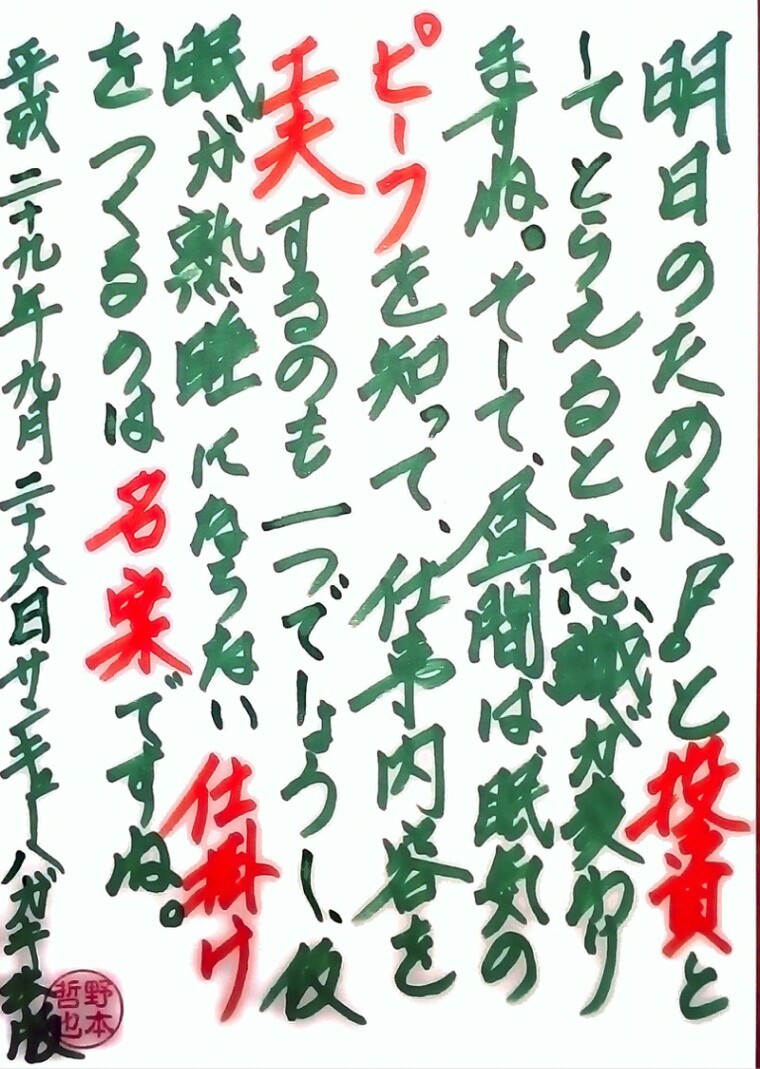 明日のために!と投資と
してとらえると意識が変わり
ますね。そして、昼間は、眠気の
ピークを知って、仕事内容を
工夫するのも一つでしょうし、仮
眠が熟睡にならない仕掛け
をつくるのは名案ですね。
平成二十九年九月二十六日 ハガキ
野本
哲也